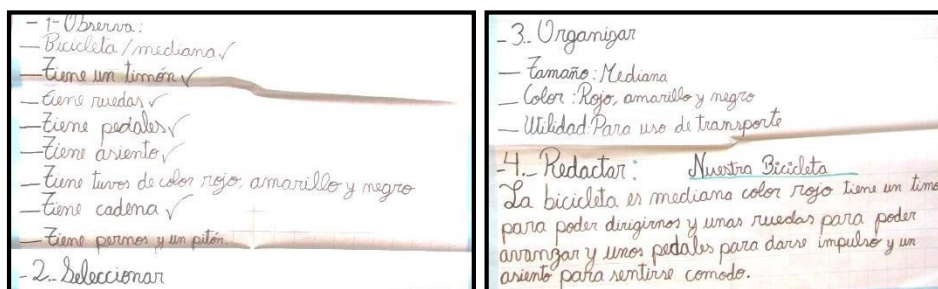 - 1- Observa:
- Bicicleta / mediana ✓
- Tiene un timón ✓
- tiene ruedas ✓
- Tiene pedales ✓
- Tiene asiento ✓
- Tiene tuvos de color rojo, amarillo y negro
- Tiene cadena ✓
- Tiene pernos y un pitón.
- 2.. Seleccionar
- 3.. Organizar
- Tamaño: Mediana
- Color: Rojo, amarillo y negro
- Utilidad: Para uso de transporte
- 4.. Redactar: Nuestra Bicicleta
La bicicleta es mediana color rojo tiene un timo
para poder dirigirnos y unas ruedas para poder
avanzar y unos pedales para darse impulso y un
asiento para sentirse comodo.